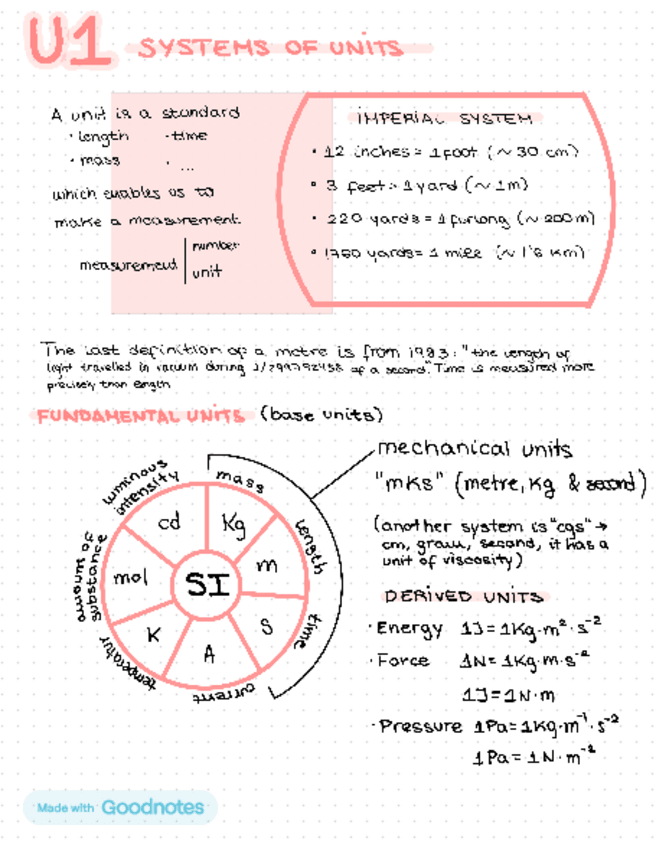 U1 SYSTEMS OF UNITS
A unit is a standard
· length · time
· mass · ...
which enables us to
make a measurement.
measurement | number
unit
IMPERIAL SYSTEM
• 12 inches = 1 foot (~ 30 cm)
• 3 feet = 1 yard (~ 1m)
• 220 yards = 1 furlong (~ 200m)
• 1760 yards = 1 mile (~ 1'6 km)
The last definition of a metre is from 1983: "the length of
light travelled in vacuum during 1/299792458 of a second". Time is measured more
precisely than length
FUNDAMENTAL UNITS (base units)
mass
Kg
length
m
time
s
current
A
temperatur
K
amount of
substance
mol
luminous
intensity
cd
SI
mechanical units
"mks" (metre, kg & second)
(another system is "cgs" →
cm, gram, second, it has a
unit of viscosity)
DERIVED UNITS
· Energy 1J = 1Kg·m²·s⁻²
· Force 1N = 1Kg·m·s⁻²
1J = 1N·m
· Pressure 1Pa = 1Kg·m⁻¹·s⁻²
1Pa = 1N·m⁻²
Made with Goodnotes